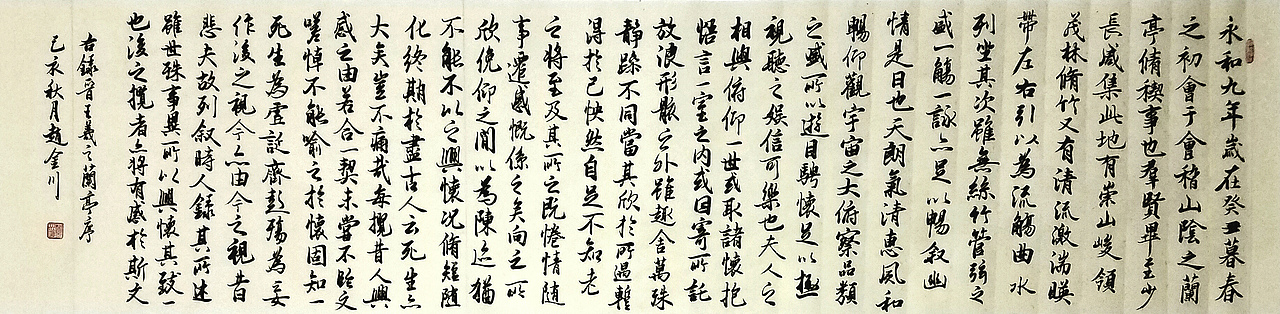 永和九年歲在癸丑暮春
之初會于會稽山陰之蘭
亭脩禊事也群賢畢至少
長咸集此地有崇山峻領
茂林脩竹又有清流激湍暎
帶左右引以為流觴曲水
列坐其次雖無絲竹管弦之
盛一觴一詠亦足以暢叙幽
情是日也天朗氣清惠風和
暢仰觀宇宙之大俯察品類
之盛所以遊目騁懷足以極
視聽之娛信可樂也夫人之
相與俯仰一世或取諸懷抱
悟言一室之內或因寄所託
放浪形骸之外雖趣舍萬殊
靜躁不同當其欣於所遇暫
得於己怏然自足不知老
之將至及其所之既惓情隨
事遷感慨係之矣向之所
欣俛仰之間以為陳迹猶
不能不以之興懷況脩短隨
化終期於盡古人云死生亦
大矣豈不痛哉每攬昔人興
感之由若合一契未嘗不臨文
嗟悼不能喻之於懷固知一
死生為虛誕齊彭殤為妄
作後之視今亦由今之視昔
悲夫故列叙時人錄其所述
雖世殊事異所以興懷其致一
也後之攬者亦將有感於斯文
右錄晉王羲之蘭亭序
己亥秋月趙金川